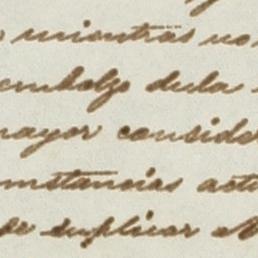 mientras no
embolzo dula
mayor conside
mstancias act
de suplicar